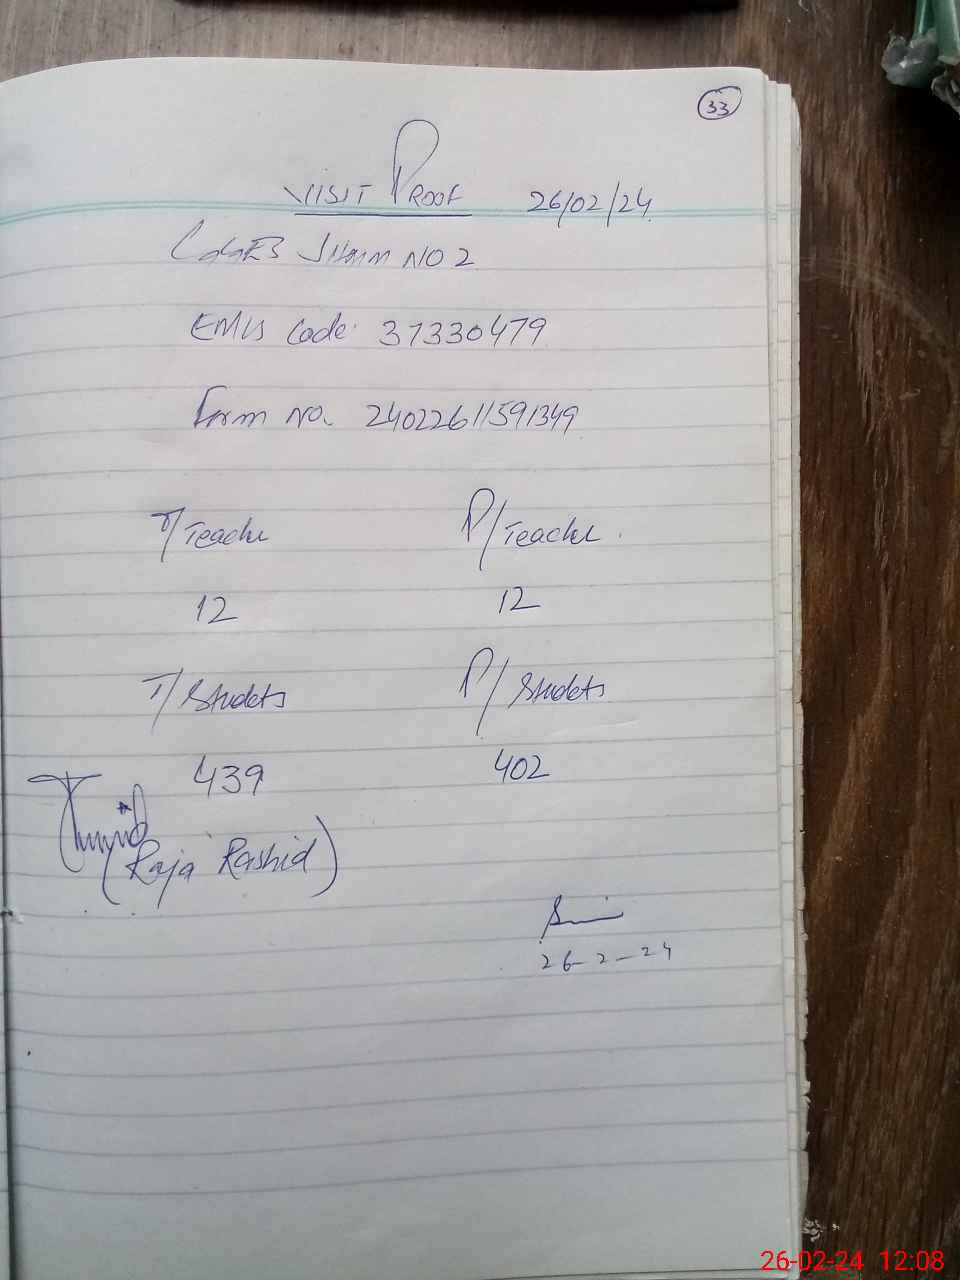 33
VISIT PROOF 26/02/24
NO 2
EMIS Code: 37330479
Form No. 24022611591349
T/Teacher P/Teacher.
12 12
T/Students P/Students
439 402
(Raja Rashid)
26-2-24
26-02-24 12:08